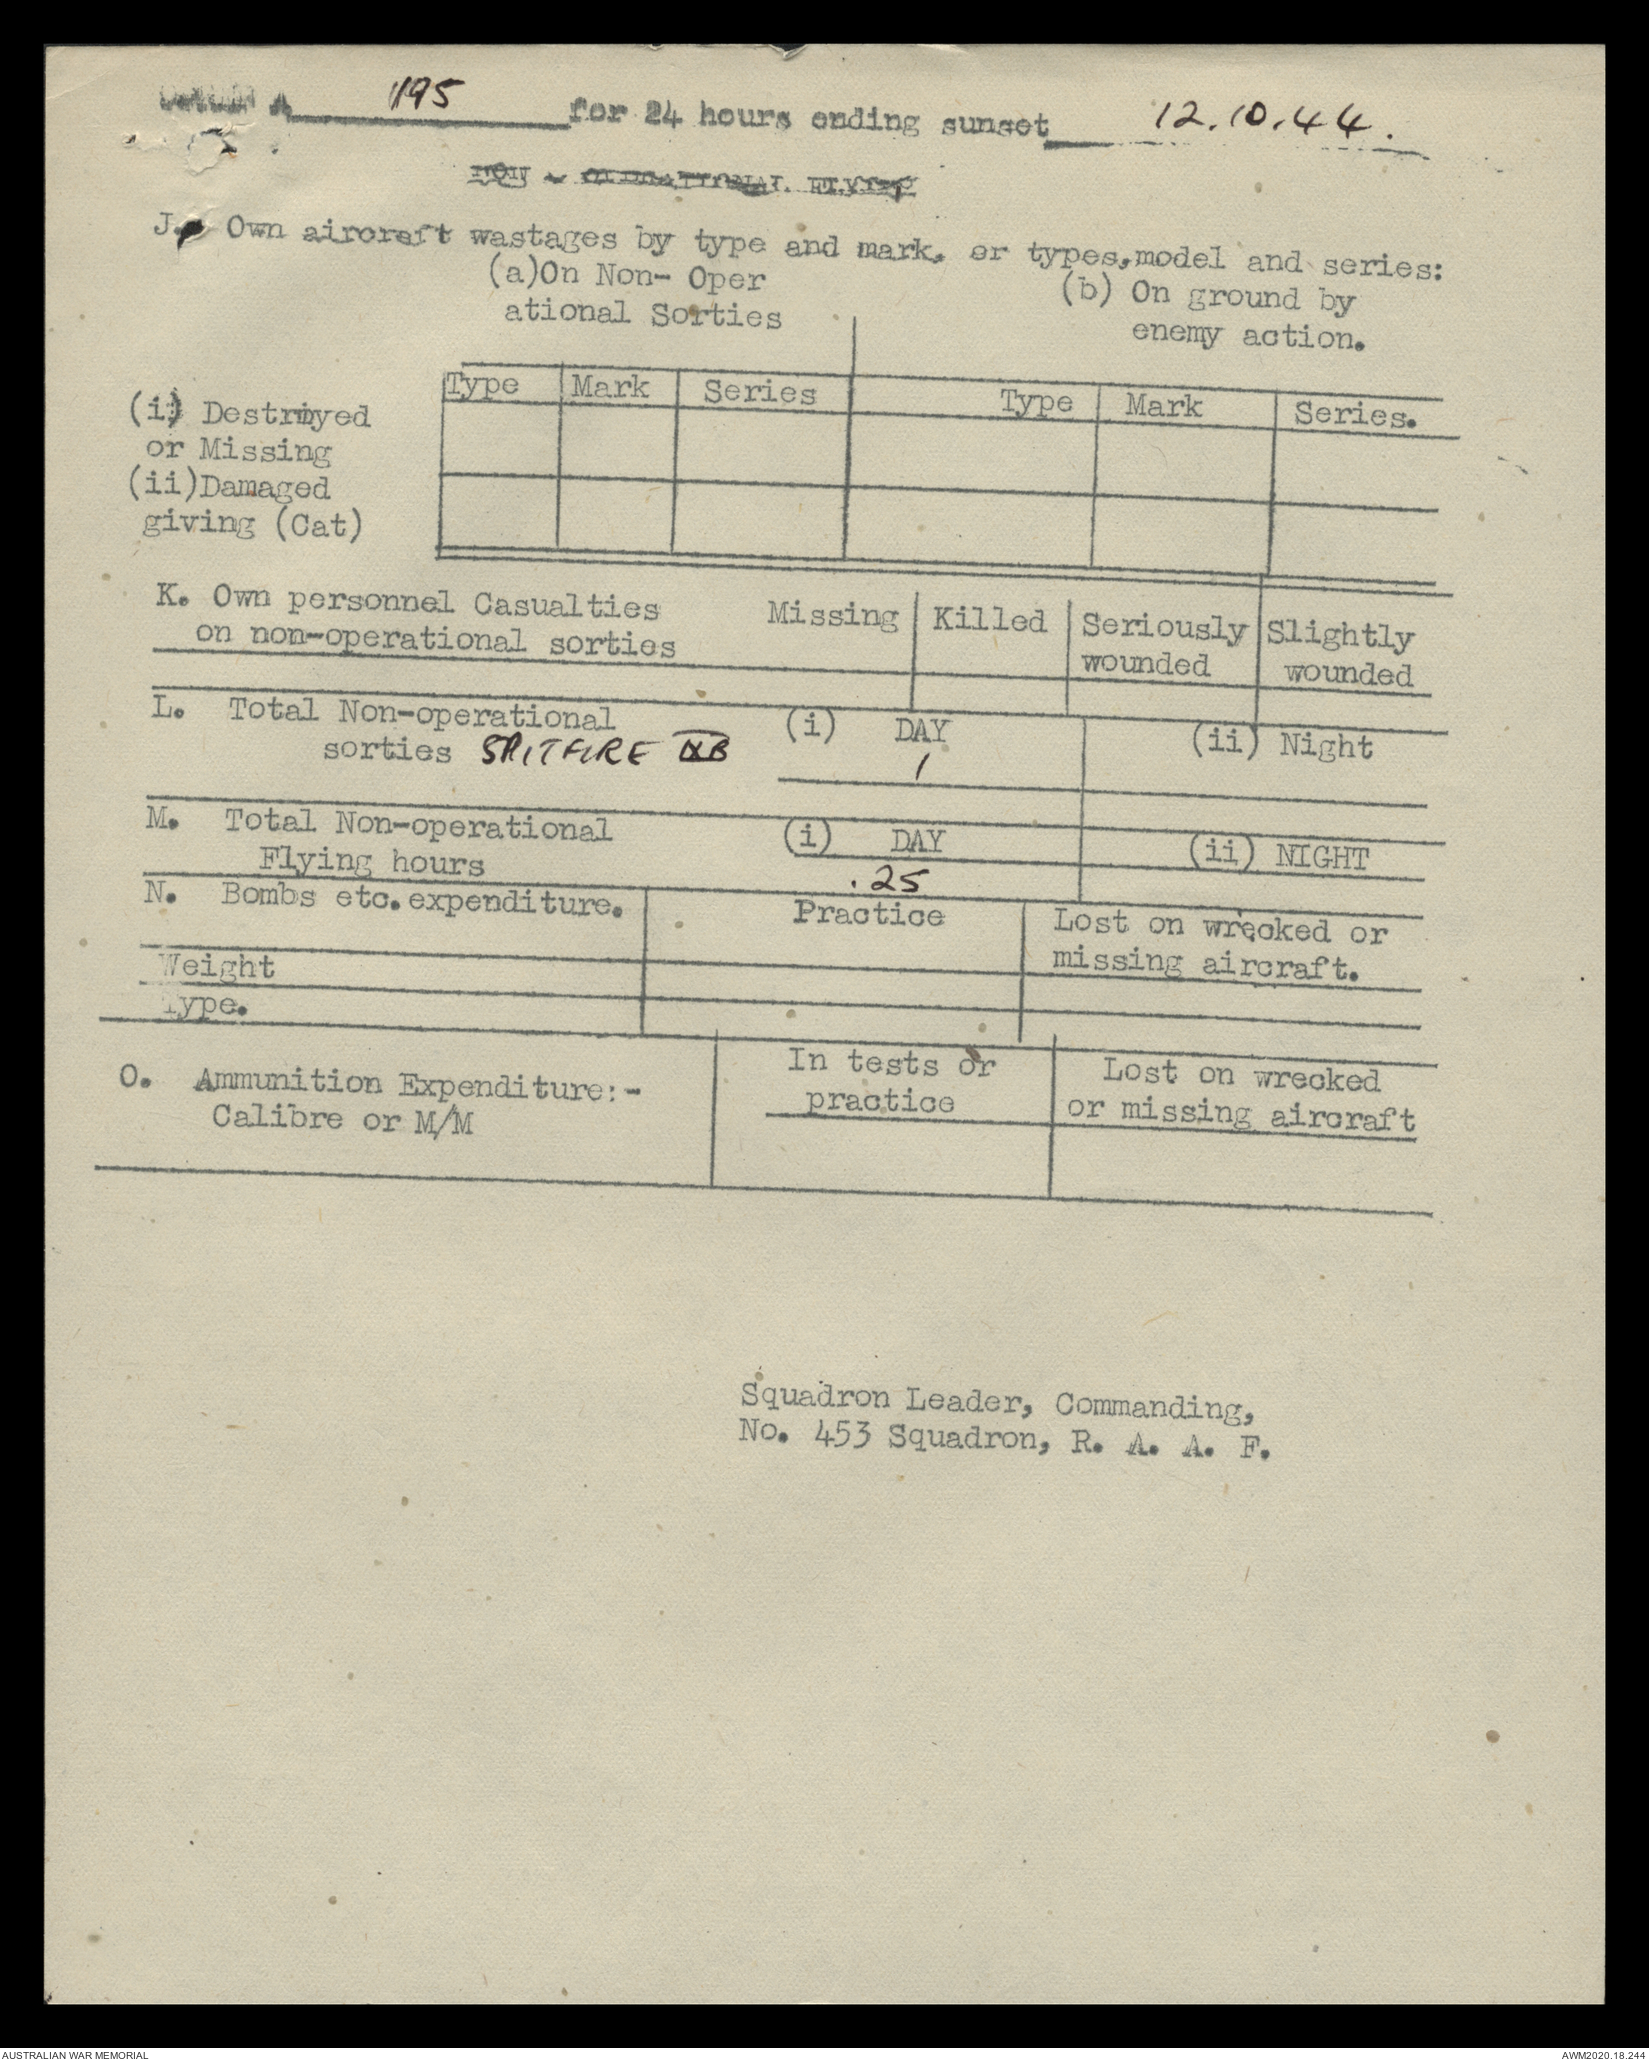 195 for 24 hours ending sunset 12.10.44.
NON - OPERATIONAL FLYING
J. Own aircraft wastages by type and mark, or types, model and series:
(a)On Non- Oper (b) On ground by
ational Sorties enemy action.
Type Mark Series Type Mark Series.
(i) Destroyed
or Missing
(ii)Damaged
giving (Cat)
K. Own personnel Casualties Missing Killed Seriously Slightly
on non-operational sorties wounded wounded
L. Total Non-operational (i) DAY (ii) Night
sorties SPITFIRE IXB 1
M. Total Non-operational (i) DAY (ii) NIGHT
Flying hours .25
N. Bombs etc. expenditure. Practice Lost on wrecked or
missing aircraft.
Weight
Type.
O. Ammunition Expenditure:- In tests or Lost on wrecked
Calibre or M/M practice or missing aircraft
Squadron Leader, Commanding,
No. 453 Squadron, R. A. A. F.
AUSTRALIAN WAR MEMORIAL AWM2020.18.244